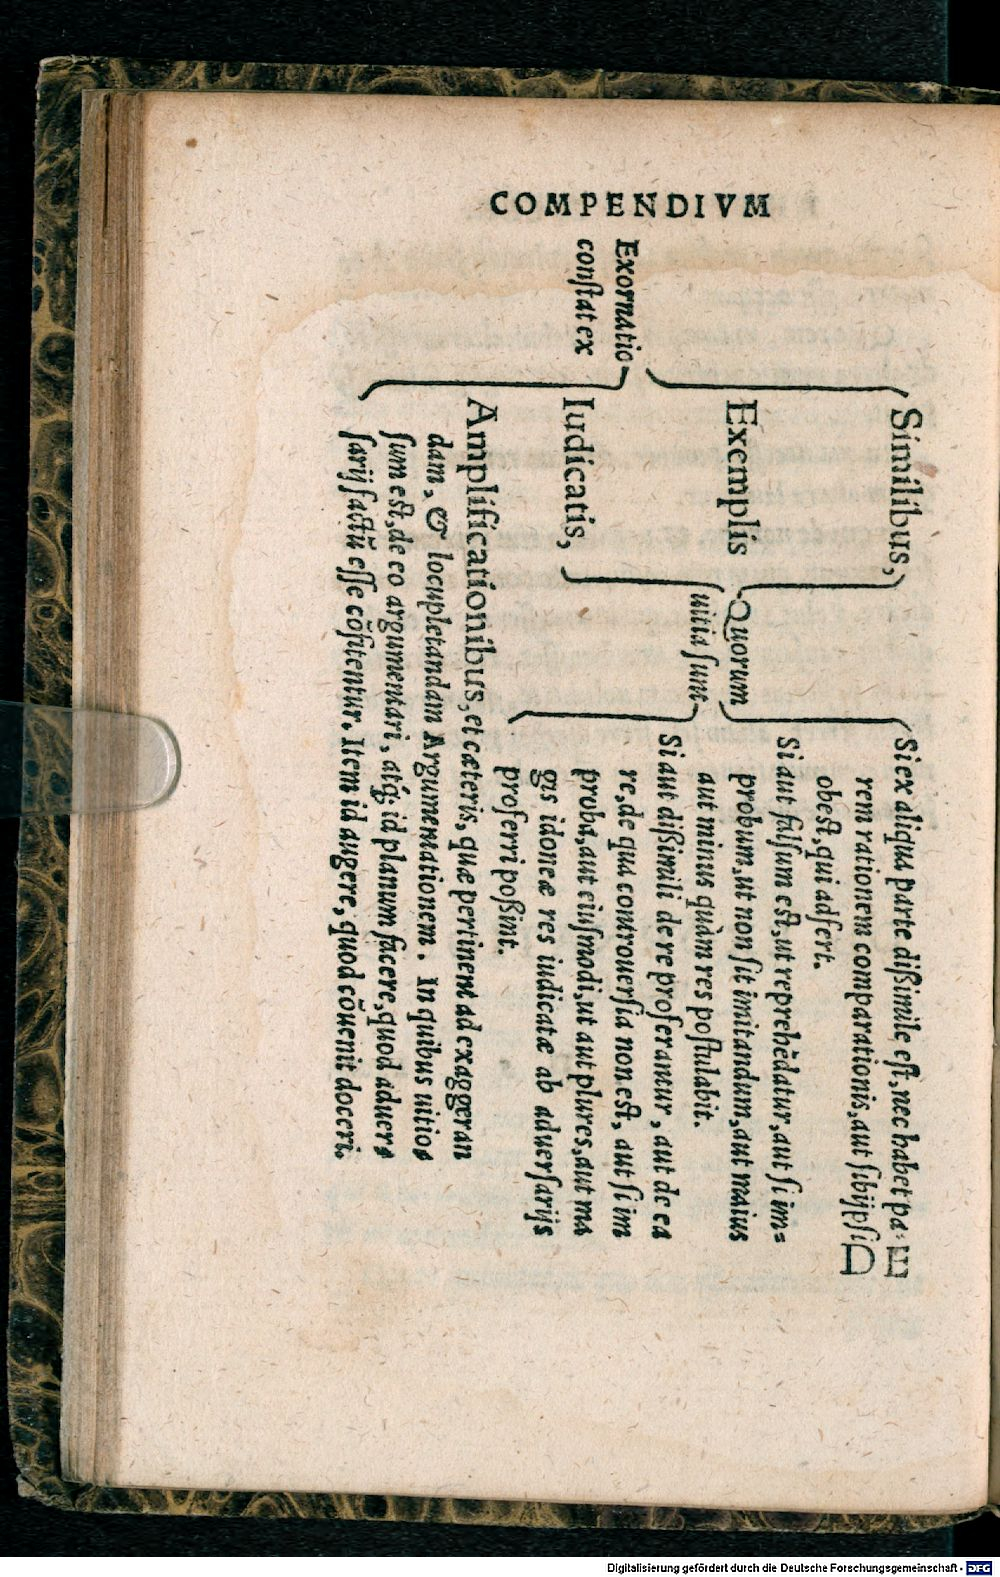 COMPENDIVM
Exornatio
conſtat ex
Similibus,
Exemplis
Iudicatis,
Quorum
uitia ſunt
Si ex aliqua parte dißimile eſt, nec habet pa=
rem rationem comparationis, aut ſibijpſi
obeſt, qui adfert.
Si aut falſum eſt, ut reprehēdatur, aut ſi im=
probum, ut non ſit imitandum, aut maius
aut minus quàm res poſtulabit.
Si aut dißimili de re proferantur, aut de ea
re, de qua controuerſia non eſt, aut ſi im
proba, aut eiuſmodi, ut aut plures, aut ma
gis idoneæ res iudicatæ ab aduerſarijs
proferri poßint.
Amplificationibus, et cæteris, quæ pertinent ad exaggeran
dam, & locupletandam Argumentationem. In quibus uitio=
ſum eſt, de eo argumentari, atq́; id planum facere, quod aduer=
ſarij factū eſſe cōfitentur. Item id augere, quod cōuenit doceri.
E
D
Digitalisierung gefördert durch die Deutsche Forschungsgemeinschaft - DFG